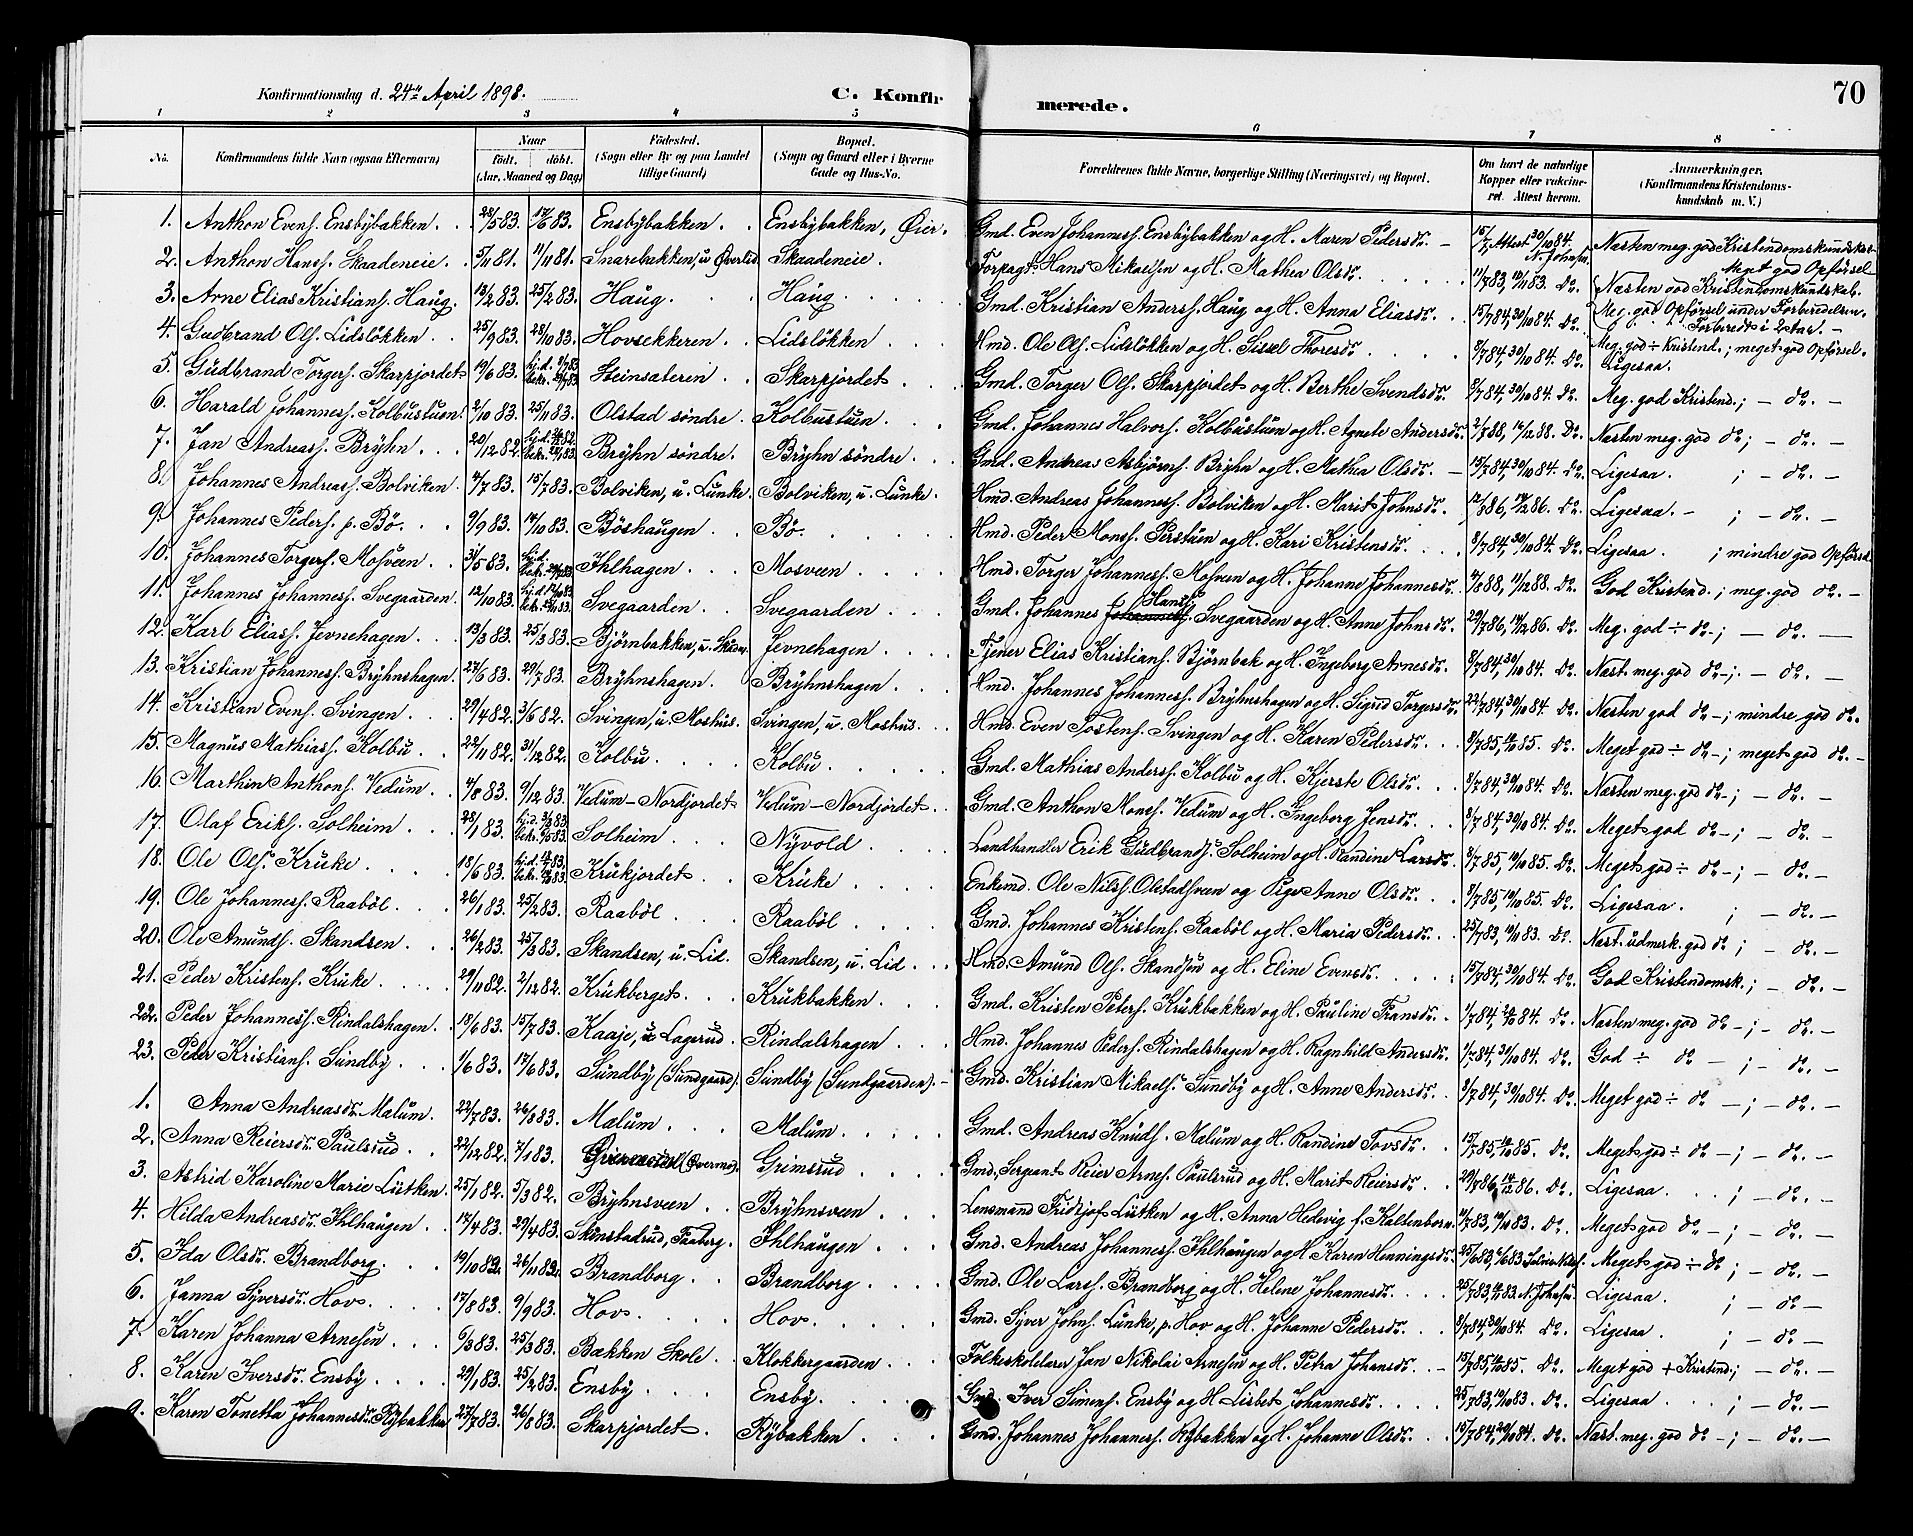 70
Konfirmationsdag d. 24de April 1898.
C. Konfir merede.
1 2 3 4 5 6 7 8
No. Konfirmandens fulde Navn (ogsaa Efternavn) Naar født. døbt. (Aar, Maaned og Dag) Fødested. (Sogn eller By og paa Landet tillige Gaard) Bopæl. (Sogn og Gaard eller i Byerne Gade og Hus-No. Forældrenes fulde Navne, borgerlige Stilling (Næringsvei) og Bopæl. Om havt de naturlige Kopper eller vakcineret. Attest herom. Anmærkninger. (Konfirmandens Kristendomskundskab m. V.)
1. Anthon Evens. Ensbybakken. 22/5 83. 17/6 83. Ensbybakken. Ensbybakken, Øier. Gmd. Even Johanness. Ensbybakken og H. Maren Pedersdr. 15/7, Attest 30/10 84. N. Johnsen. Næsten meg. god Kristendomskundskab. Meget god Opførsel
2. Anthon Hanss. Skaadeneie. 5/11 81. 11/11 81. Snarebakken, u Øverlid Skaadeneie. Forpagt. Hans Mikaelsen og H. Mathea Olsdr. 11/7 83, 10/11 83. Do. Næsten god Kristendomskundskab. Meg. god Opførsel under Forberedelsen. Forberedt i 2 Aar.
3. Arne Elias Kristians. Haug. 13/2 83. 25/2 83. Haug. Haug. Gmd. Kristian Anderss. Haug og H. Anna Eliasdr. 15/7 84, 30/10 84. Do.
4. Gudbrand Ols. Lidsløkken. 25/9 83. 28/10 83. Hovsekkeren. Lidsløkken. Hmd. Ole Ols. Lidsløkken og H. Sissel Thoresdr. 8/7 84, 30/10 84. Do. Meg. god ÷ Kristend.; meget god Opførsel
5. Gudbrand Torgers. Skarpjordet 19/6 83. Heinsæteren. Skarpjordet. Gmd. Torger Ols. Skarpjordet og H. Berthe Svendsdr. 8/7 84, 30/10 84. Do. Ligesaa.
6. Harald Johanness. Kolbustuen. 2/10 83. 25/11 83. Olstad søndre. Kolbustuen. Gmd. Johannes Halvors. Kolbustuen og H. Agnete Andersdr. 2/7 88, 16/12 88. Do. Meg. god Kristend.; – do. –
7. Jan Andreass. Bryhn. 20/12 82. Bryhn søndre. Bryhn søndre. Gmd. Andreas Asbjørns. Bryhn og H. Mathea Olsdr. 15/7 84, 30/10 84. Do. Næsten meg. god do.; – do. –
8. Johannes Andreass. Bolviken. 4/7 83. 15/7 83. Bolviken, u. Lunke. Bolviken, u. Lunke. Hmd. Andreas Johanness. Bolviken og H. Marit Johnsdr. Do. Ligesaa. ; – do. –
9. Johannes Peders. p. Bø. 9/9 83. 14/10 83. Bøshaugen. Bø. Hmd. Peder Monss. Perstuen og H. Kari Kristensdr. 8/7 84, 30/10 84. Do. Ligesaa. – ; – do. –
10. Johannes Torgers. Mosveen. 31/5 83. Ihlhagen. Mosveen. Hmd. Torger Johanness. Mosveen og H. Johanne Johannesdr. Do. Ligesaa. ; mindre god Opførsel
11. Johannes Johanness. Svegaarden. 12/10 83. Svegaarden. Svegaarden. Gmd. Johannes Hanss. Svegaarden og H. Anne Johnsdr. 29/7 86, 14/12 86. Do. God Kristend.; meg. god do. –
12. Karl Eliass. Jevnehagen. 13/3 83. 25/3 83. Bjørnbakken, u. Skaden. Jevnehagen. Tjener Elias Kristians. Bjørnbak og H. Ingeborg Arnesdr. 8/7 84, 30/10 84. Do. Meg. god ÷ do –; – do. –
13. Kristian Johanness. Bryhnshagen. 27/6 83. 29/7 83. Bryhnshagen. Bryhnshagen. Hmd. Johannes Johanness. Bryhnshagen og H. Sigrid Torgersdr. 22/7 84, 30/10 84. Do. Næst. meg. god do –; – do. –
14. Kristian Evens. Svingen. 29/4 82. 3/6 82. Svingen, u. Moshus. Svingen, u. Moshus. Hmd. Even Tostens. Svingen og H. Karen Pedersdr. Do. Næsten god do –; mindre god do.
15. Magnus Mathiass. Kolbu. 22/11 82. 31/12 82. Kolbu. Kolbu. Gmd. Mathias Anderss. Kolbu og H. Kjersti Olsdr. 8/7 84, 30/10 84. Do. Meget god ÷ do –; meget god do. –
16. Marthin Anthons. Vedum. 4/8 83. 9/12 83. Vedum–Nordjordet Vedum–Nordjordet. Gmd. Anthon Monss. Vedum og H. Ingeborg Jensdr. 8/7 84, 30/10 84. Do. Næsten meg. god do –; – do. –
17. Olaf Eriks. Solheim. 28/1 83. Solheim. Nyvold. Landhandler Erik Gudbrands. Solheim og H. Randine Larsdr. 8/7 85, 10/10 85. Do. Meget god do –; – do. –
18. Ole Ols. Kruke. 18/6 83. Krukjordet. Kruke. Enkemd. Ole Nilss. Olstadsveen og Pige Anne Olsdr. 8/7 85, 10/10 85. Do. Meget god ÷ do –; – do. –
19. Ole Johanness. Raabøl. 26/1 83. 25/2 83. Raabøl. Raabøl. Gmd. Johannes Kristens. Raabøl og H. Maria Pedersdr. 25/7 83, 10/10 83. Do. Ligesaa. ; – do. –
20. Ole Amunds. Skandsen. 26/2 83. 25/3 83. Skandsen, u. Lid. Skandsen, u. Lid. Hmd. Amund Ols. Skandsen og H. Eline Evensdr. 15/7 84, 30/10 84. Do. Næst. udmerk. god do; – do. –
21. Peder Kristens. Kruke. 29/11 82. 2/12 82. Krukberget. Krukbakken. Gmd. Kristen Peters. Krukbakken og H. Pauline Fransdr. Do. God Kristendomsk.; – do. –
22. Peder Johanness. Rindalshagen. 18/6 83. 15/7 83. Kaaje, u Lagerud. Rindalshagen. Hmd. Johannes Peders. Rindalshagen og H. Ragnhild Andersdr. 1/7 84, 30/10 84. Do. Næsten meg. god do –; – do. –
23. Peder Kristians. Sundby. 1/6 83. 17/6 83. Sundby (Sundgaard). Sundby (Sundgaarden). Gmd. Kristian Mikaels. Sundby og H. Anne Andersdr. 8/7 84, 30/10 84. Do. God ÷ do –; – do. –
1. Anna Andreasdr. Mælum. 22/7 83. 26/8 83. Mælum. Mælum. Gmd. Andreas Knuds. Mælum og H. Randine Tovsdr. Do. Meget god ÷ do –; – do. –
2. Anna Reiersdr. Paulsrud. 22/12 82. 7/1 83. (Øvermo). Grimsrud. Gmd, Sergeant Reier Arnes. Paulsrud og H. Marit Reiersdr. 29/7 86, 14/12 86. Do. Meget god ÷ do –; – do. –
3. Astrid Karoline Marie Lütken. 25/1 82. 5/3 82. Bryhnsveen. Bryhnsveen. Lensmand Fridtjof Lütken og H. Anna Hedevig f. Kaltenborn. 11/7 83, 10/10 83. Do. Ligesaa. ; – do. –
4. Hilda Andreasdr. Ihlhaugen. 17/4 83. 29/4 83. Skønstadrud, Faaberg. Ihlhaugen. Gmd. Andreas Johanness. Ihlhaugen og H. Karen Henningsdr. Meget god do –; – do. –
5. Ida Olsdr. Brandborg. 19/10 82. 26/11 82. Brandborg. Brandborg. Gmd. Ole Larss. Brandborg og H. Helene Johannesdr. N. Johnsen. Meget god ÷ do; – do. –
6. Janna Syversdr. Hov. 17/8 83. 9/9 83. Hov. Hov. Gmd. Syver Johns. Lunke, p. Hov og H. Johanne Pedersdr. 8/7 84, 30/10 84. Do. Ligesaa. ; – do –
7. Karen Johanna Arnesen. 6/3 83. 25/3 83. Bækken Skole. Klokkergaarden. Folkeskolelærer Jan Nikolai Arnesen og H. Petra Johansdr. 15/7 85, 10/10 85. Do. Ligesaa. ; – do. –
8. Karen Iversdr. Ensby. 29/1 83. 25/2 83. Ensby. Ensby. Gmd. Iver Simens. Ensby og H. Lisbet Johannesdr. 25/7 83, 10/10 83. Do. Meget god + Kristend; – do. –
9. Karen Tonetta Johannesdr. Rybakken 27/7 83. 26/8 83. Skarpjordet. Rybakken. Gmd. Johannes Johanness. Rybakken og H. Johanne Olsdr. 15/7 84, 30/10 84. Do. Ligesaa. ; – do. –
Næst. meg. god do –; – do. –